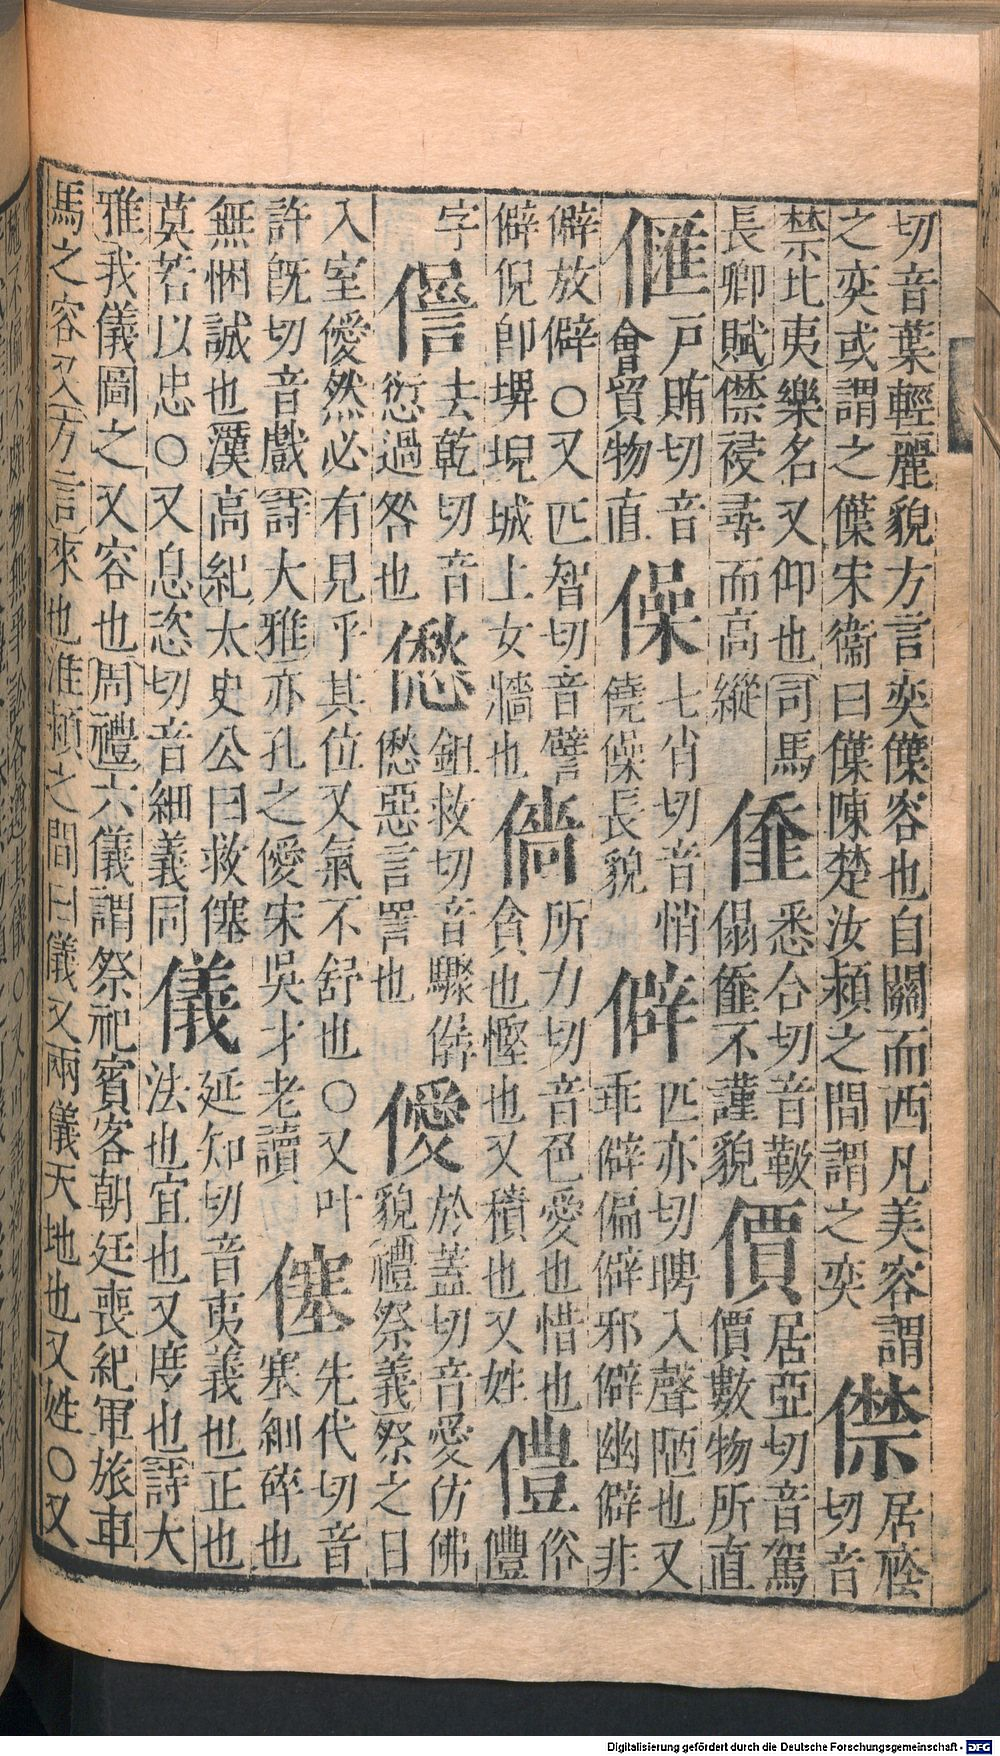 切音葉輕麗貌方言奕僷容也自關而西凡美容謂
之奕或謂之僷宋衞曰僷陳楚汝潁之間謂之奕
僸
居廕
切音
禁北夷樂名又仰也司馬
長卿賦僸祲尋而高縱
悉合切音靸
不謹貌
價
居亞切音駕
價數物所直
戶賄切音
會貿物直
僺
七肖切音悄
僥僺長貌
僻
匹亦切聘入聲陋也又
乖僻偏僻邪僻幽僻非
僻放僻○又匹智切音譬
僻倪卽埤堄城上女牆也
所力切音色愛也惜也
貪也慳也又積也又姓
俗
僼
字
去乾切音
愆過咎也
僽
鉏救切音驟僝
僽惡言詈也
僾
於蓋切音愛仿佛
貌禮祭義祭之日
入室僾然必有見乎其位又氣不舒也○又叶
許旣切音戲詩大雅亦孔之僾宋吳才老讀
僿
先代切音
塞細碎也
無悃誠也漢高紀太史公曰救僿
莫若以忠○又息恣切音細義同
儀
延知切音夷義也正也
法也宜也又度也詩大
雅我儀圖之又容也周禮六儀謂祭祀賓客朝廷喪紀軍旅車
馬之容又方言來也淮潁之間曰儀又兩儀天地也又姓○又
Digitalisierung gefördert durch die Deutsche Forschungsgemeinschaft - DFG